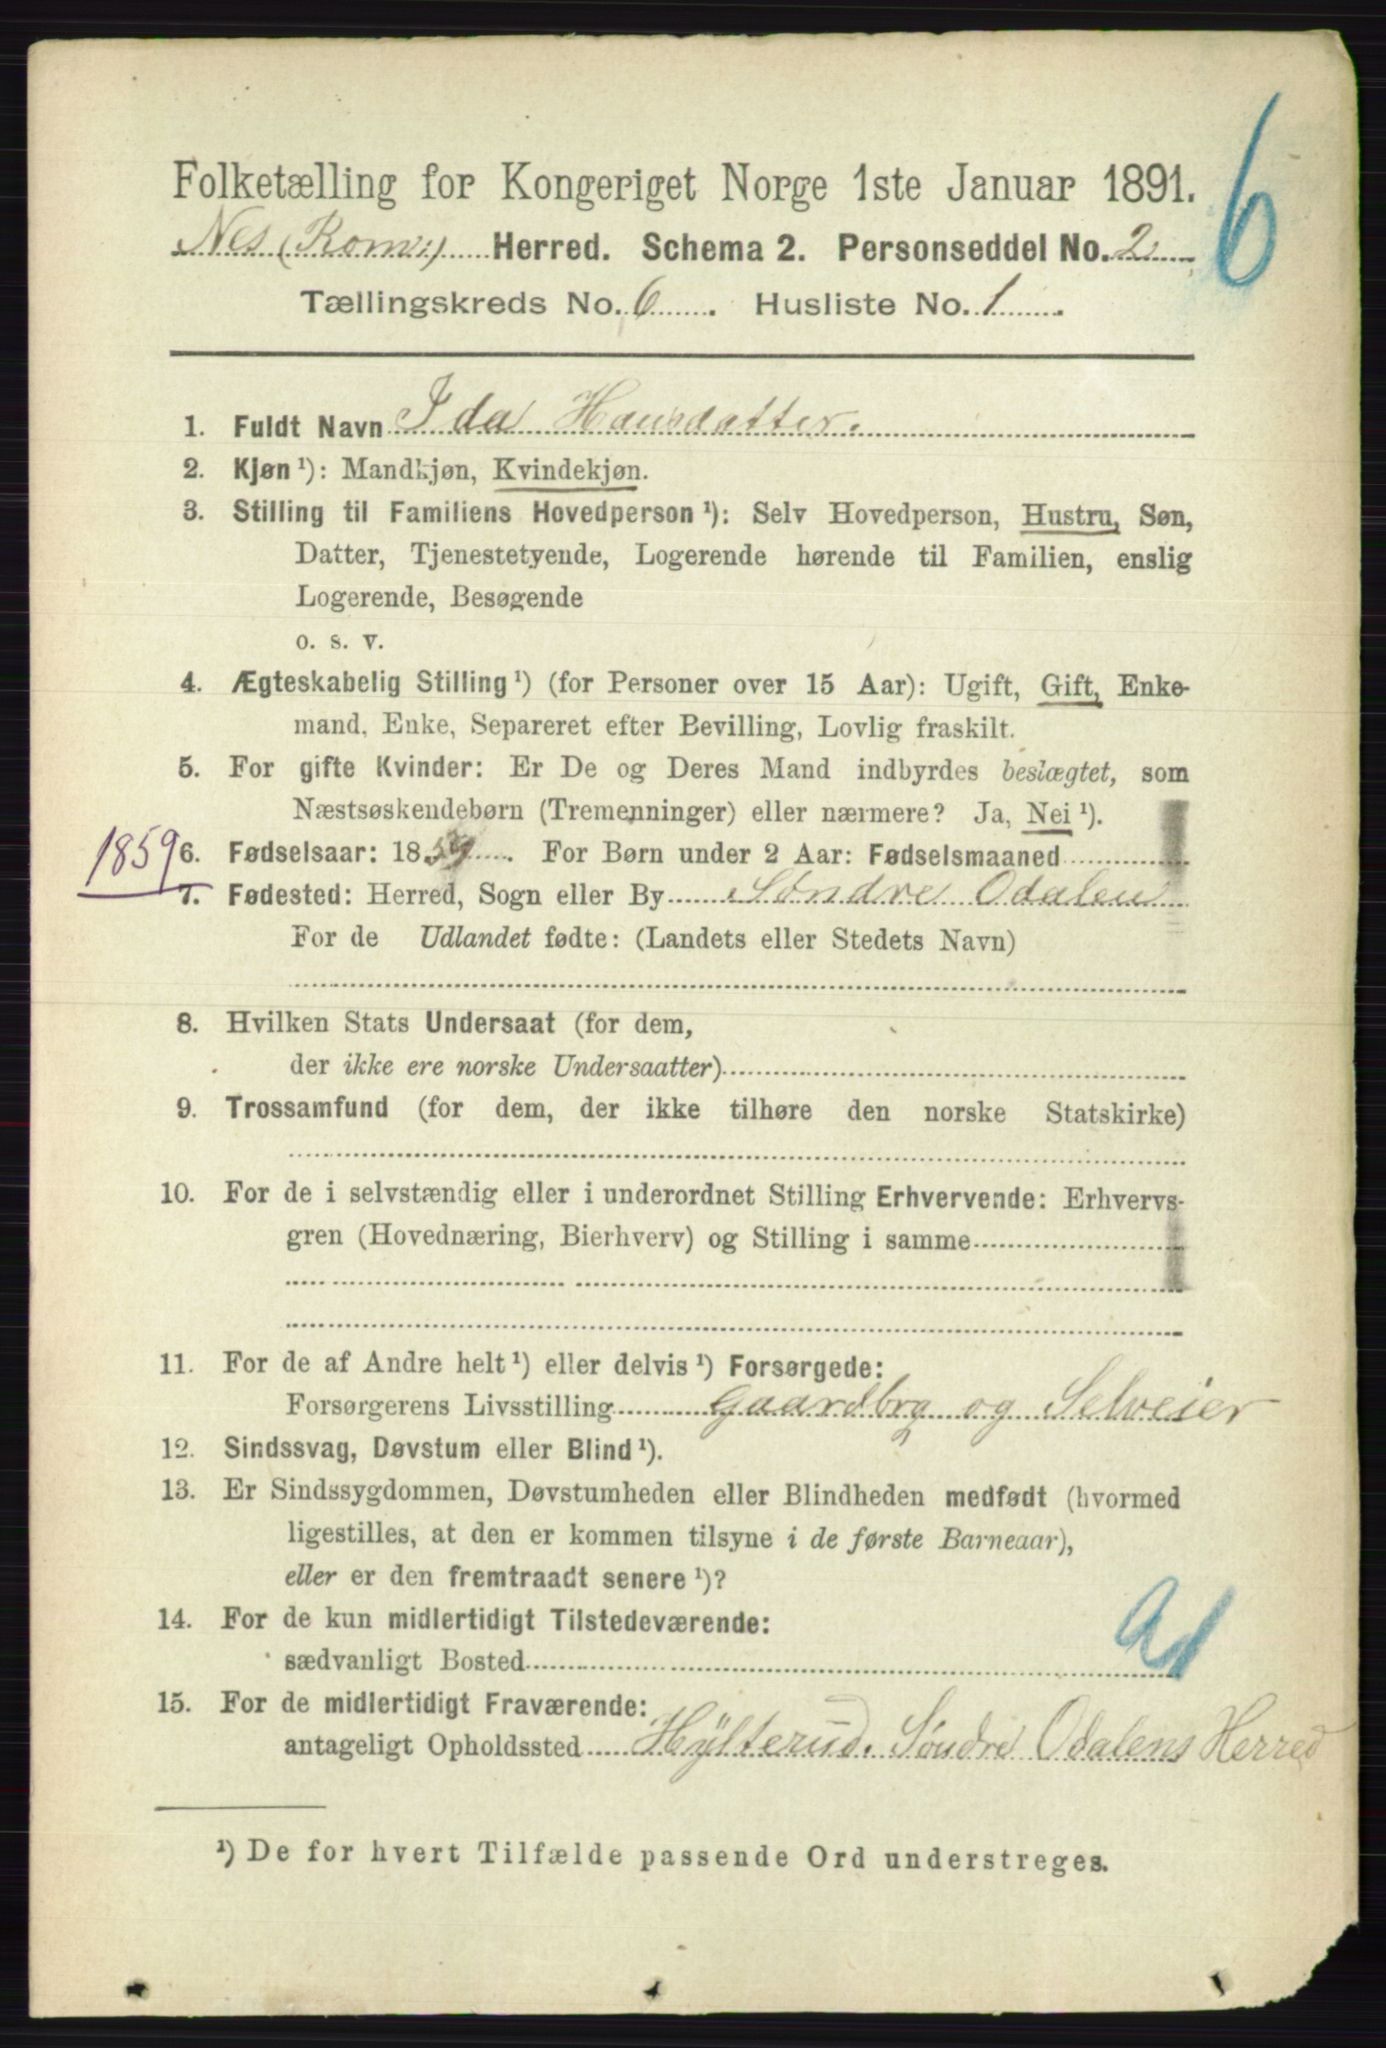 6
Folketælling for Kongeriget Norge 1ste Januar 1891.
Nes (Rom:) Herred. Schema 2. Personseddel No. 2
Tællingskreds No. 6. Husliste No. 1.
1. Fuldt Navn Ida Hansdatter.
2. Kjøn ¹): Mandkjøn, Kvindekjøn.
3. Stilling til Familiens Hovedperson ¹): Selv Hovedperson, Hustru, Søn,
Datter, Tjenestetyende, Logerende hørende til Familien, enslig
Logerende, Besøgende
o. s. v.
4. Ægteskabelig Stilling ¹) (for Personer over 15 Aar): Ugift, Gift, Enke-
mand, Enke, Separeret efter Bevilling, Lovlig fraskilt.
5. For gifte Kvinder: Er De og Deres Mand indbyrdes beslægtet, som
Næstsøskendebørn (Tremenninger) eller nærmere? Ja, Nei ¹).
1859 6. Fødselsaar: 1859. For Børn under 2 Aar: Fødselsmaaned
7. Fødested: Herred, Sogn eller By Søndre Odalen
For de Udlandet fødte: (Landets eller Stedets Navn)
8. Hvilken Stats Undersaat (for dem,
der ikke ere norske Undersaatter)
9. Trossamfund (for dem, der ikke tilhøre den norske Statskirke)
10. For de i selvstændig eller i underordnet Stilling Erhvervende: Erhvervs-
gren (Hovednæring, Bierhverv) og Stilling i samme
11. For de af Andre helt ¹) eller delvis ¹) Forsørgede:
Forsørgerens Livsstilling Gaardbrg og Selveier
12. Sindssvag, Døvstum eller Blind ¹).
13. Er Sindssygdommen, Døvstumheden eller Blindheden medfødt (hvormed
ligestilles, at den er kommen tilsyne i de første Barneaar),
eller er den fremtraadt senere ¹)?
14. For de kun midlertidigt Tilstedeværende:
sædvanligt Bosted
15. For de midlertidigt Fraværende:
antageligt Opholdssted Hÿlterud. Søndre Odalens Herred
¹) De for hvert Tilfælde passende Ord understreges.